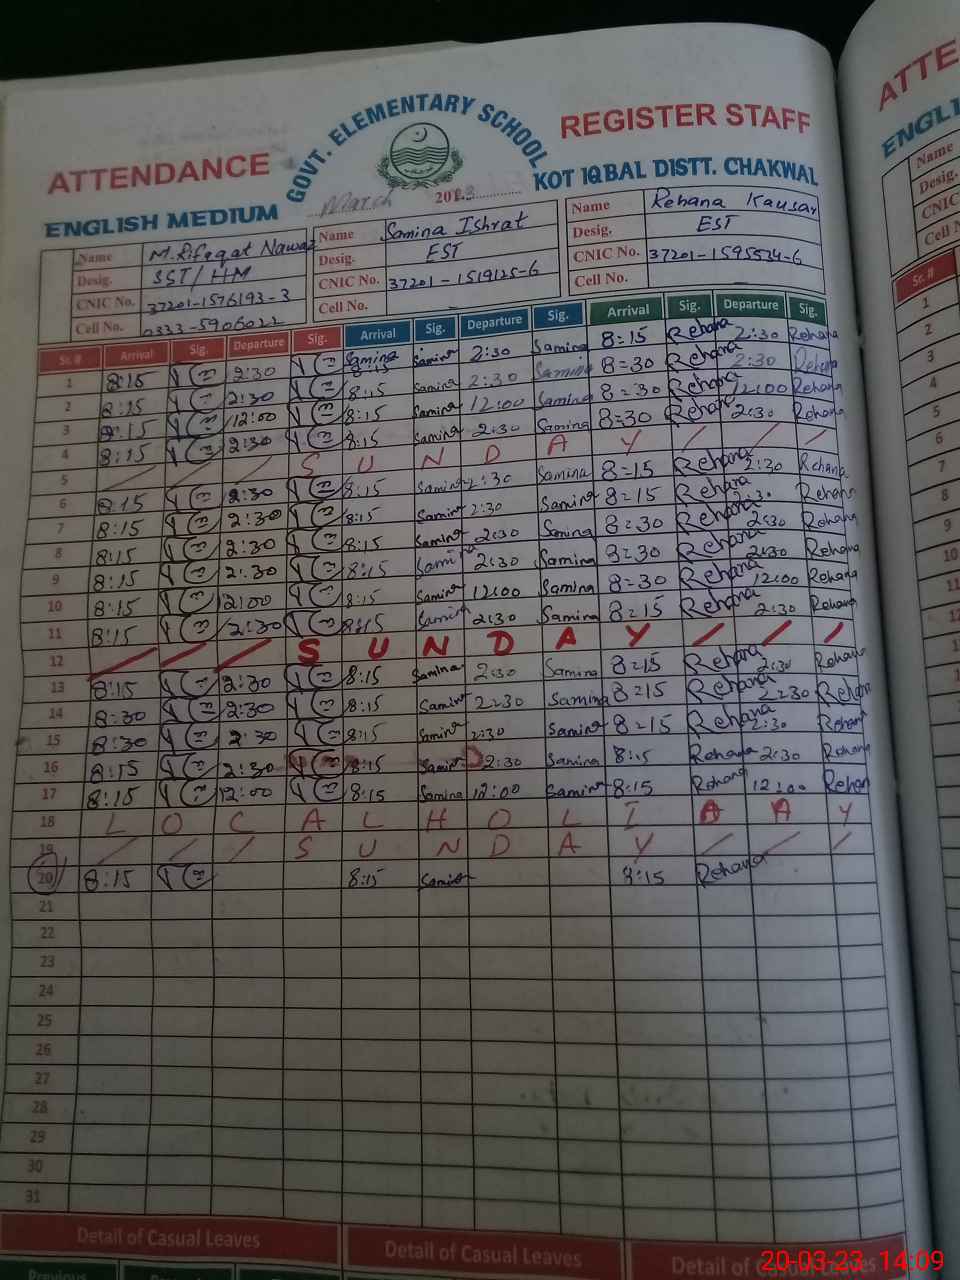 GOVT. ELEMENTARY SCHOOL
ATTENDANCE REGISTER STAFF
ENGLISH MEDIUM KOT IQBAL DISTT. CHAKWAL
March 2023
Name M. Rifaqat Nawaz Name Samina Ishrat Name Rehana Kausar
Desig. SST/HM Desig. EST Desig. EST
CNIC No. 37201-1576193-3 CNIC No. 37201-1519125-6 CNIC No. 37201-1595524-6
Cell No. 0333-5906022 Cell No. - Cell No. -
Sr. # Arrival Sig. Departure Sig. Arrival Sig. Departure Sig. Arrival Sig. Departure Sig.
1 8:15 2:30 8:15 Samina 2:30 Samina 8=15 Rehana 2:30 Rehana
2 8:15 2:30 8:15 Samina 2:30 Samina 8=30 Rehana 2:30 Rehana
3 8:15 12:00 8:15 Samina 12:00 Samina 8=30 Rehana 12:00 Rehana
4 8:15 2:30 8:15 Samina 2:30 Samina 8=30 Rehana 2:30 Rehana
5 S U N D A Y
6 8:15 2:30 8:15 Samina 2:30 Samina 8=15 Rehana 2:30 Rehana
7 8:15 2:30 8:15 Samina 2:30 Samina 8=15 Rehana 2:30 Rehana
8 8:15 2:30 8:15 Samina 2:30 Samina 8=30 Rehana 2:30 Rehana
9 8:15 2:30 8:15 Samina 2:30 Samina 8=30 Rehana 2:30 Rehana
10 8:15 12:00 8:15 Samina 12:00 Samina 8=30 Rehana 12:00 Rehana
11 8:15 2:30 8:15 Samina 2:30 Samina 8=15 Rehana 2:30 Rehana
12 S U N D A Y
13 8:15 2:30 8:15 Samina 2:30 Samina 8=15 Rehana 2:30 Rehana
14 8:30 2:30 8:15 Samina 2:30 Samina 8=15 Rehana 2:30 Rehana
15 8:30 2:30 8:15 Samina 2:30 Samina 8=15 Rehana 2:30 Rehana
16 8:15 2:30 8:15 Samina 2:30 Samina 8:15 Rehana 2:30 Rehana
17 8:15 12:00 8:15 Samina 12:00 Samina 8:15 Rehana 12:00 Rehana
18 L O C A L H O L I D A Y
19 S U N D A Y
20 8:15 8:15 Samina 8:15 Rehana
21
22
23
24
25
26
27
28
29
30
31
Detail of Casual Leaves Detail of Casual Leaves Detail of Casual Leaves
Previous
20-03-23 14:09